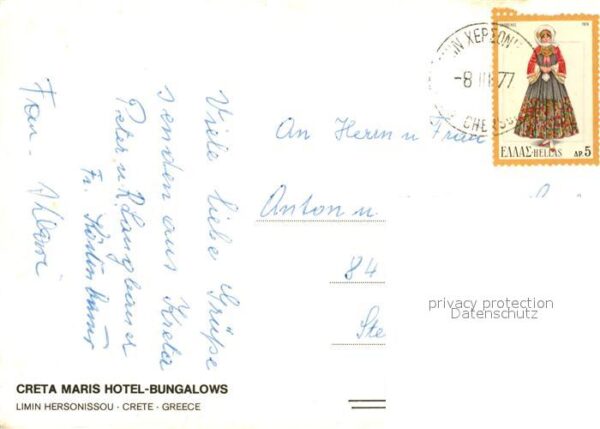 Viele liebe Grüße
senden aus Kreta
Peter u R. Langbauer
Fr.
Frau.
An Herrn u Frau
Anton u
84
Ste
ΧΕΡΣΟΝ
-8 III 77
CHE
ΕΛΛΑΣ-HELLAS ΔΡ.5
privacy protection
Datenschutz
CRETA MARIS HOTEL-BUNGALOWS
LIMIN HERSONISSOU · CRETE · GREECE